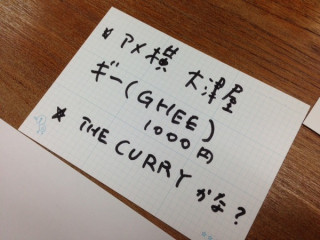 ★ アメ横 大津屋
ギー(GHEE)
1000円
★ THE CURRY かな?